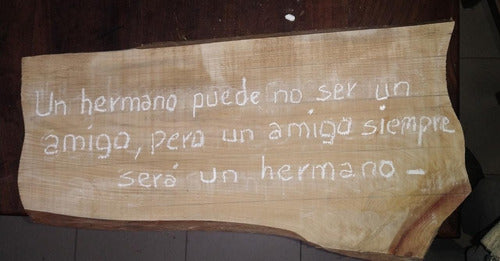 Un hermano puede no ser un
amigo, pero un amigo siempre
será un hermano -